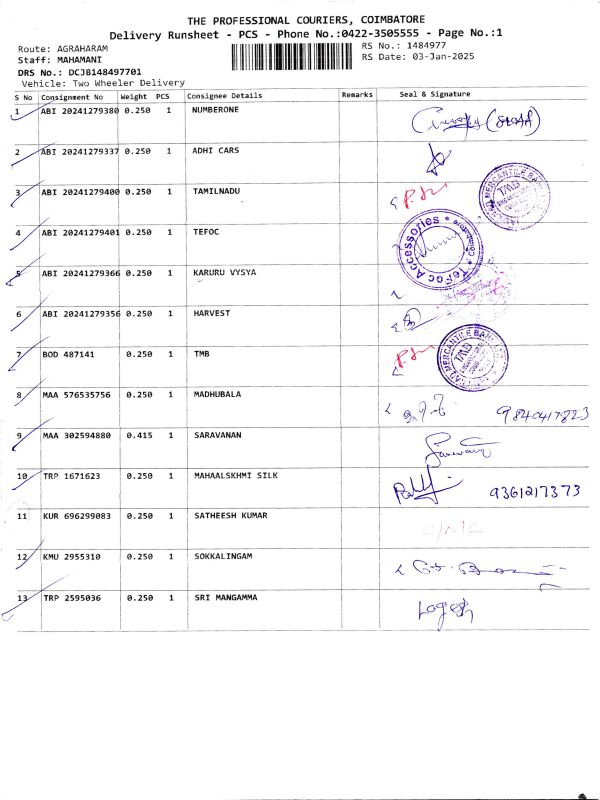 THE PROFESSIONAL COURIERS, COIMBATORE
Delivery Runsheet - PCS - Phone No.:0422-3505555 - Page No.:1
Route: AGRAHARAM RS No.: 1484977
Staff: MAHAMANI RS Date: 03-Jan-2025
DRS No.: DCJB148497701
Vehicle: Two Wheeler Delivery
S No Consignment No Weight PCS Consignee Details Remarks Seal & Signature
1 ABI 20241279380 0.250 1 NUMBERONE
2 ABI 20241279337 0.250 1 ADHI CARS
3 ABI 20241279400 0.250 1 TAMILNADU
4 ABI 20241279401 0.250 1 TEFOC
TeFoc Accessories
5 ABI 20241279366 0.250 1 KARURU VYSYA
6 ABI 20241279356 0.250 1 HARVEST
7 BOD 487141 0.250 1 TMB
8 MAA 576535756 0.250 1 MADHUBALA 9840417823
9 MAA 302594880 0.415 1 SARAVANAN
10 TRP 1671623 0.250 1 MAHAALSKHMI SILK 9361217373
11 KUR 696299083 0.250 1 SATHEESH KUMAR
12 KMU 2955310 0.250 1 SOKKALINGAM
13 TRP 2595036 0.250 1 SRI MANGAMMA Logesh